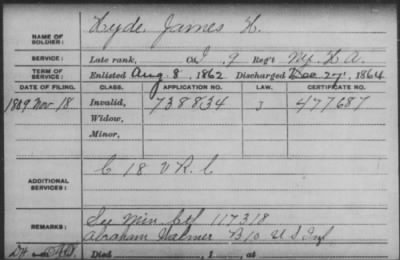 Hyde, James H.
NAME OF SOLDIER:
SERVICE: Late rank, Co. I, 9 Reg't Ny. H A.
TERM OF SERVICE: Enlisted Aug. 8, 1862 Discharged Dec 27, 1864
DATE OF FILING. CLASS. APPLICATION NO. LAW. CERTIFICATE NO.
1889 Nov. 18. Invalid, 738834 3 477687
Widow,
Minor,
C 18 V R C
ADDITIONAL SERVICES:
REMARKS: See Min. Ctf 117318
Abraham B 10 U S Inf
Died , 1 , at